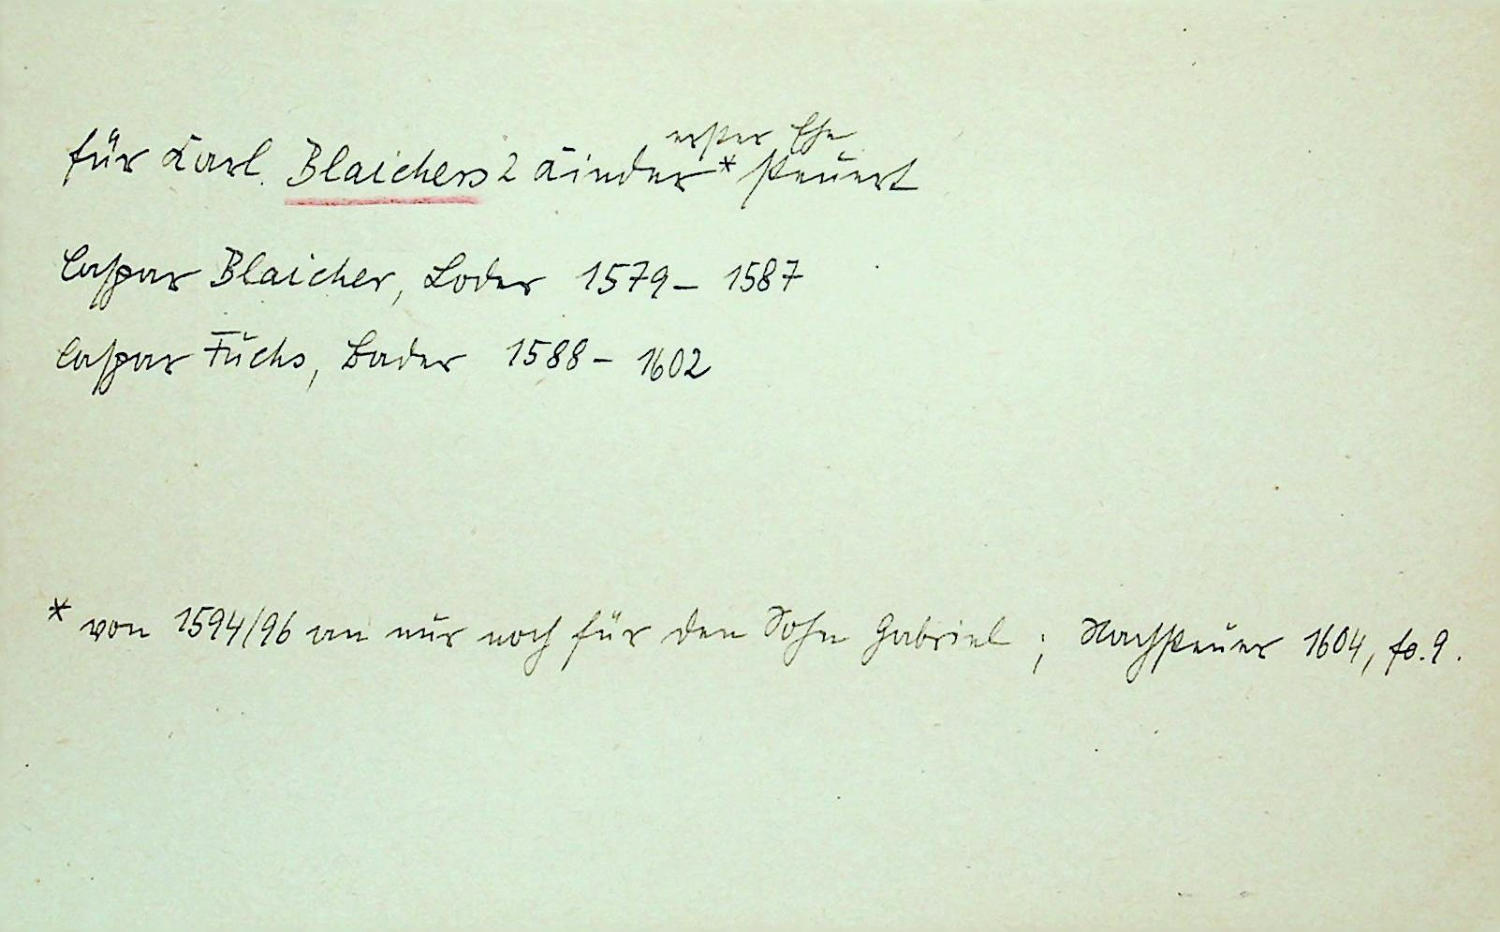 erster Ehe
für Karl Blaichers 2 Kinder * steuert
Caspar Blaicher, Loder 1579 – 1587
Caspar Fuchs, Bader 1588 – 1602
* von 1594/96 an nur noch für den Sohn Gabriel ; Nachsteuer 1604, fo. 9.